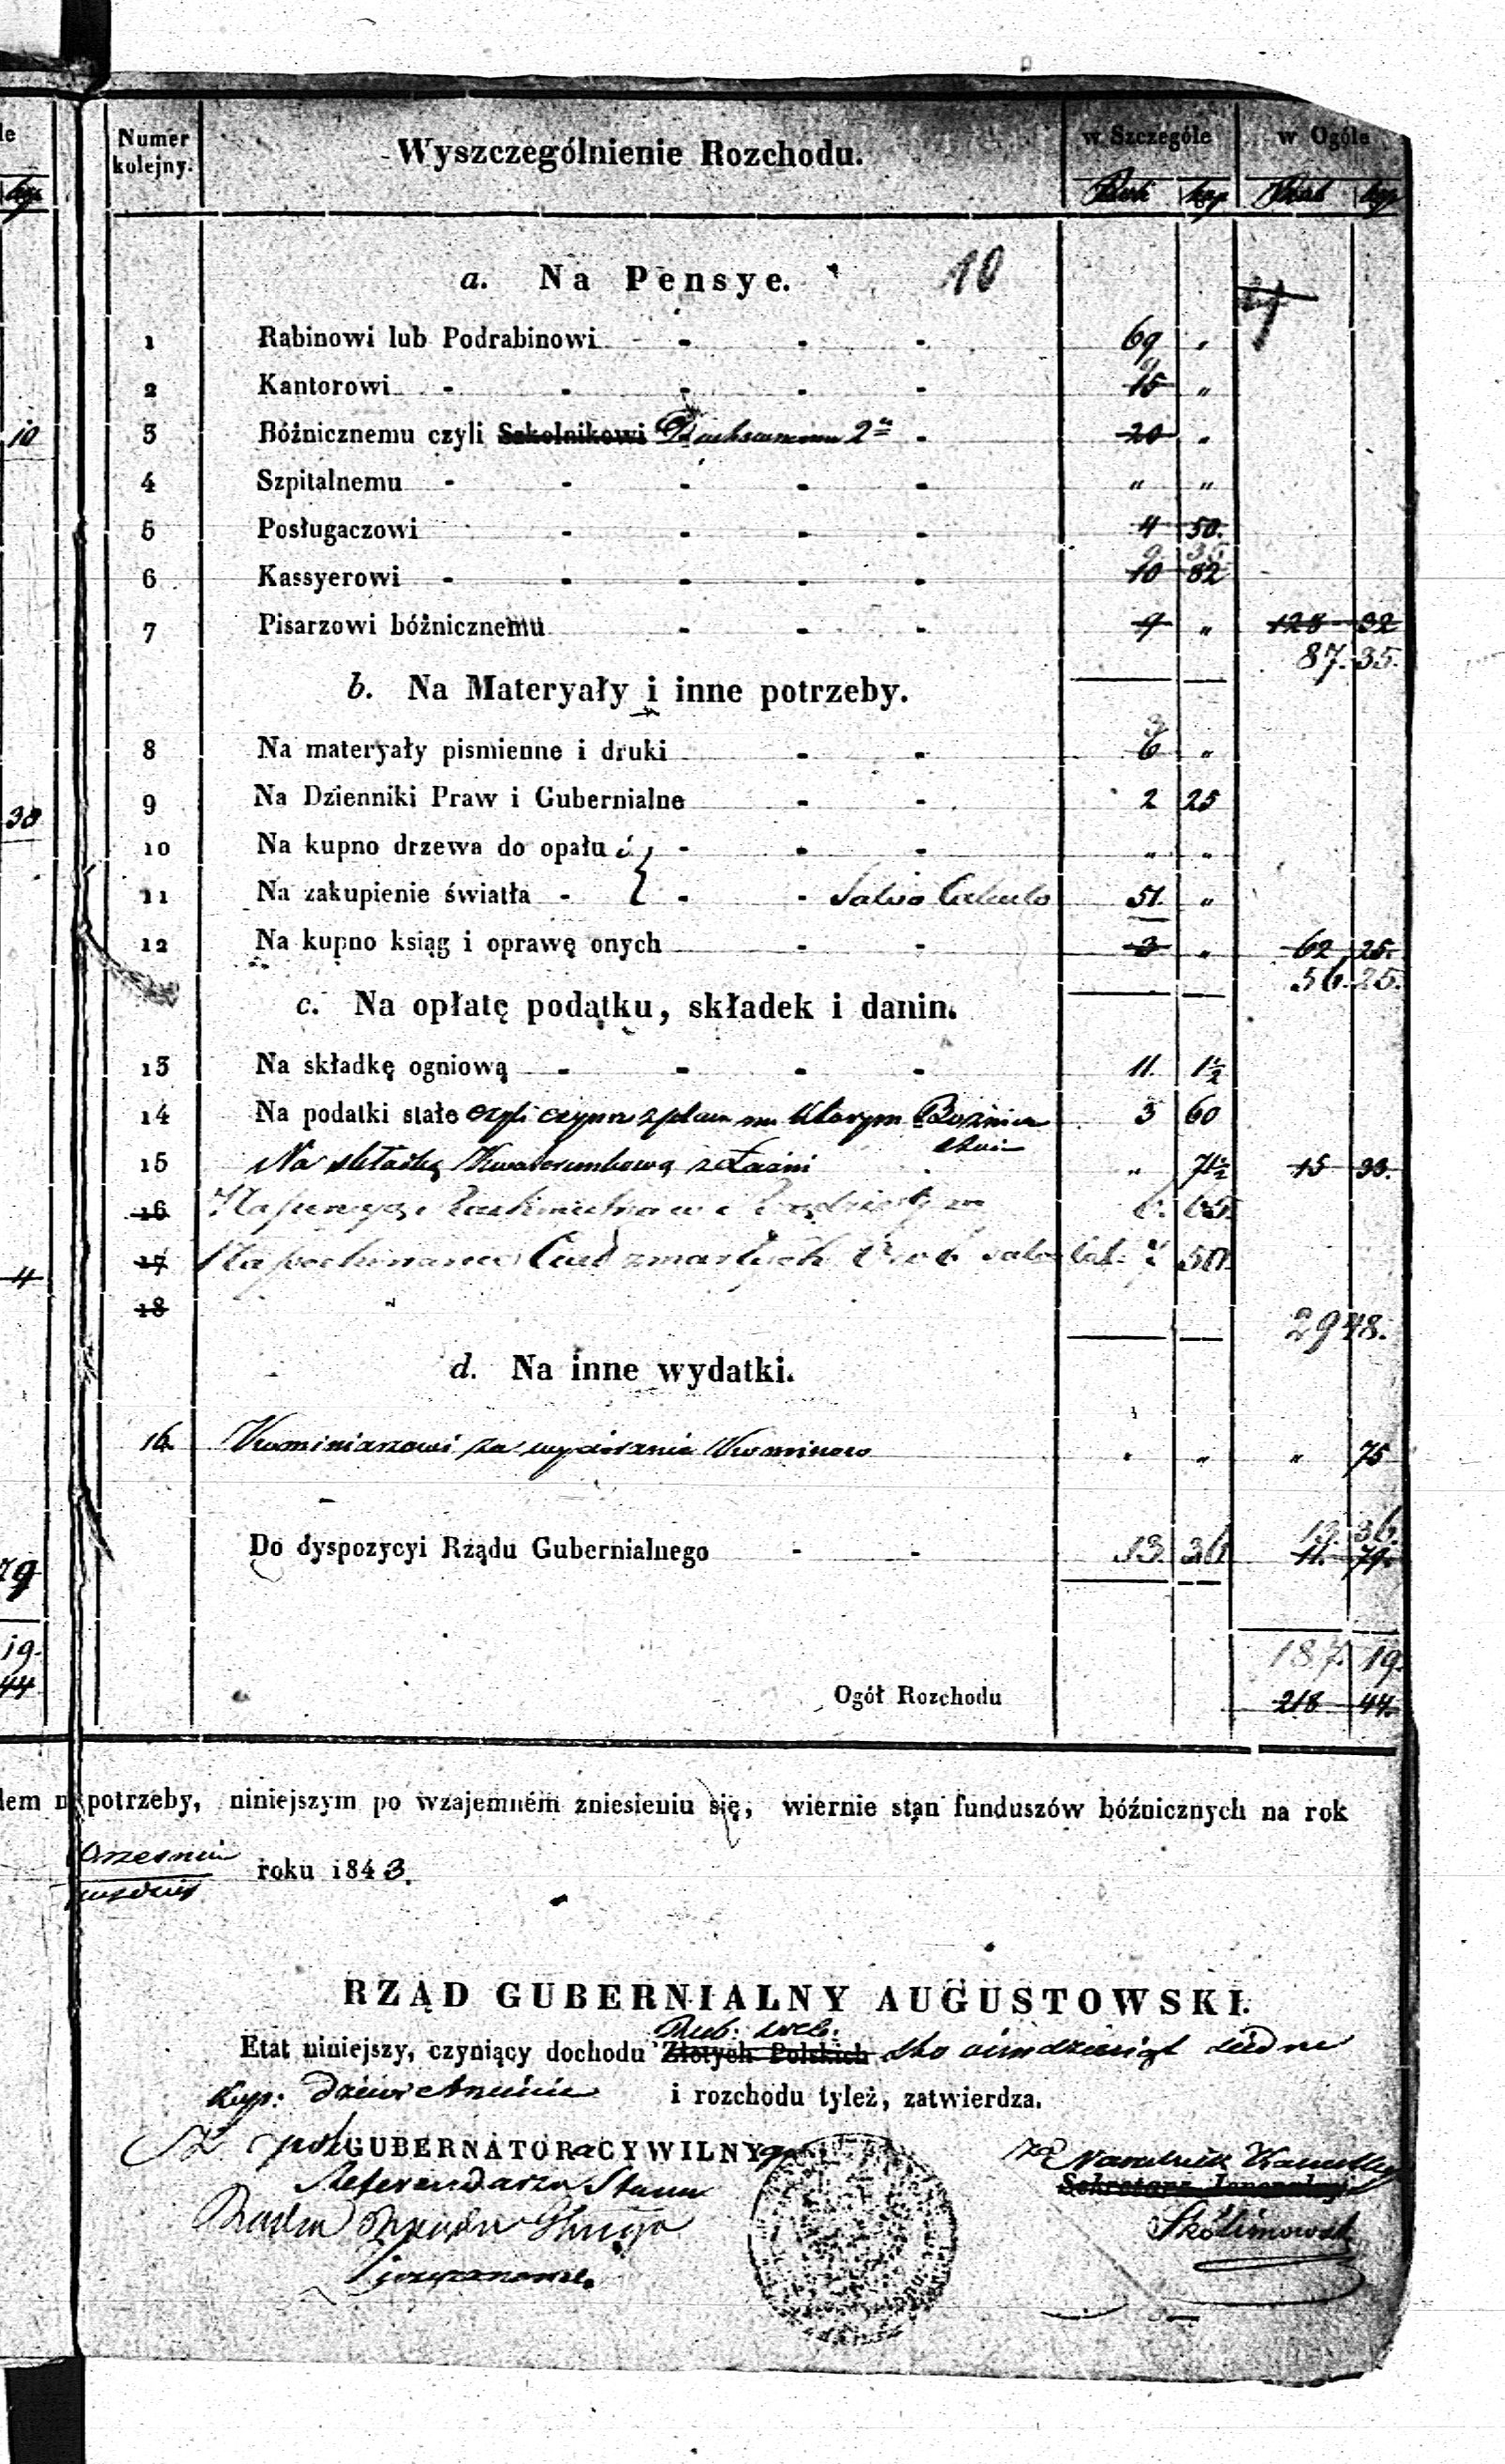 le
Numer kolejny.
Wyszczególnienie Rozchodu.
w Szczególe
w Ogóle
kop
Rub kop Rub kop
a. Na Pensye. 10
1 Rabinowi lub Podrabinowi 69 "
2 Kantorowi 15 "
10
3 Bóżnicznemu czyli Szkolnikowi 20 "
4 Szpitalnemu " "
5 Posługaczowi 4 50.
9 35
6 Kassyerowi 10 82
7 Pisarzowi bóżnicznemu 9 " 128 32
87. 35.
b. Na Materyały i inne potrzeby.
3
8 Na materyały pismienne i druki 6 "
9 Na Dzienniki Praw i Gubernialne 2 25
38
10 Na kupno drzewa do opału i " "
11 Na zakupienie światła Salvo Calculo 51. "
12 Na kupno ksiąg i oprawę onych 3 " 62 25.
56. 25.
c. Na opłatę podatku, składek i danin.
13 Na składkę ogniową 11. 1½
14 Na podatki stałe czyli czynsz z placu na którym Bożnica 3 60
stoi
15 Na składkę Kwaterunkową z Łaźni " 71½ 15 33.
16 6. 65.
17 Na pochowanie Ciał zmarłych 50
4
18
29 48.
d. Na inne wydatki.
16. Kominiarzowi za wycieranie Kominow " " " 75
13. 36.
Do dyspozycyi Rządu Gubernialnego 13. 36 11. 79.
79
19. 187. 19.
44 Ogół Rozchodu 218 44.
potrzeby, niniejszym po wzajemném zniesieniu się, wiernie stan funduszów bóźnicznych na rok
roku 1843.
RZĄD GUBERNIALNY AUGUSTOWSKI.
Rub: sreb:
Etat niniejszy, czyniący dochodu Złotych Polskich sto ośmdziesiąt siedm
kop: dziewietnaście i rozchodu tyleż, zatwierdza.
GUBERNATORA CYWILNEGO
Referendarz Stanu
za Naczelnik Kancellaryi
Sekretarz Jeneralny
Radca
Skolimowski